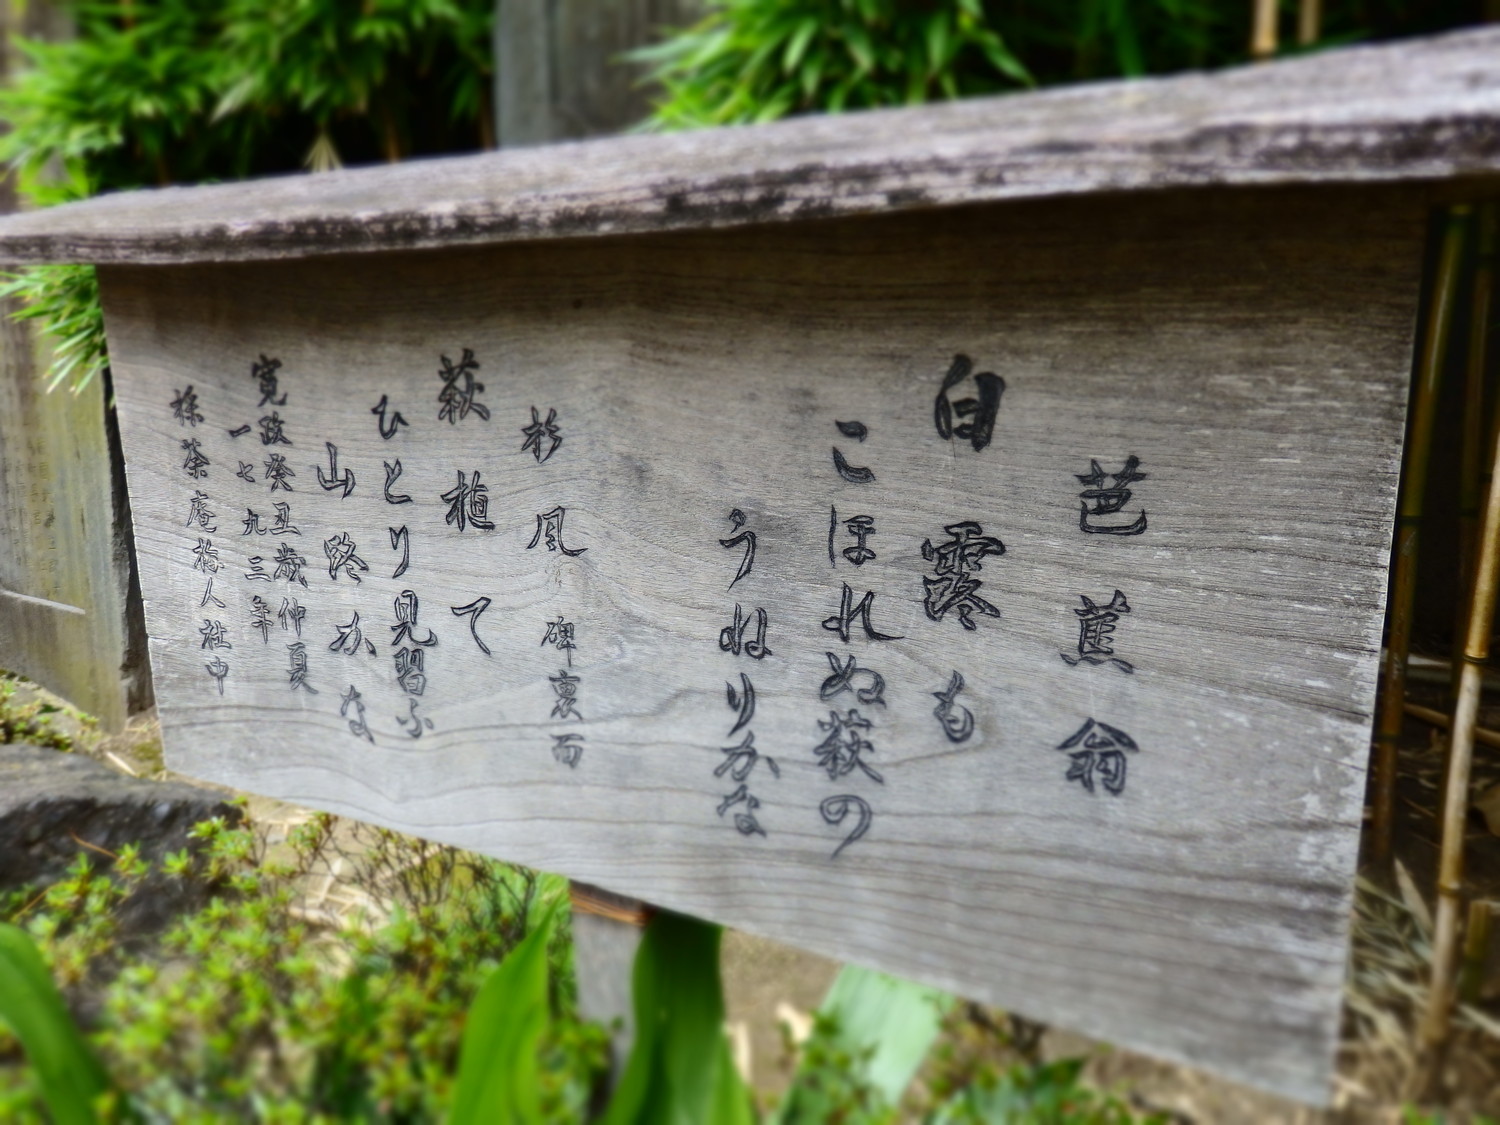 芭蕉翁
白露も
こほれぬ萩の
うねりかな
杉風 碑裏面
萩植て
ひとり見習ふ
山路かな
寛政癸丑歳仲夏
一七九三年
採荼庵梅人社中